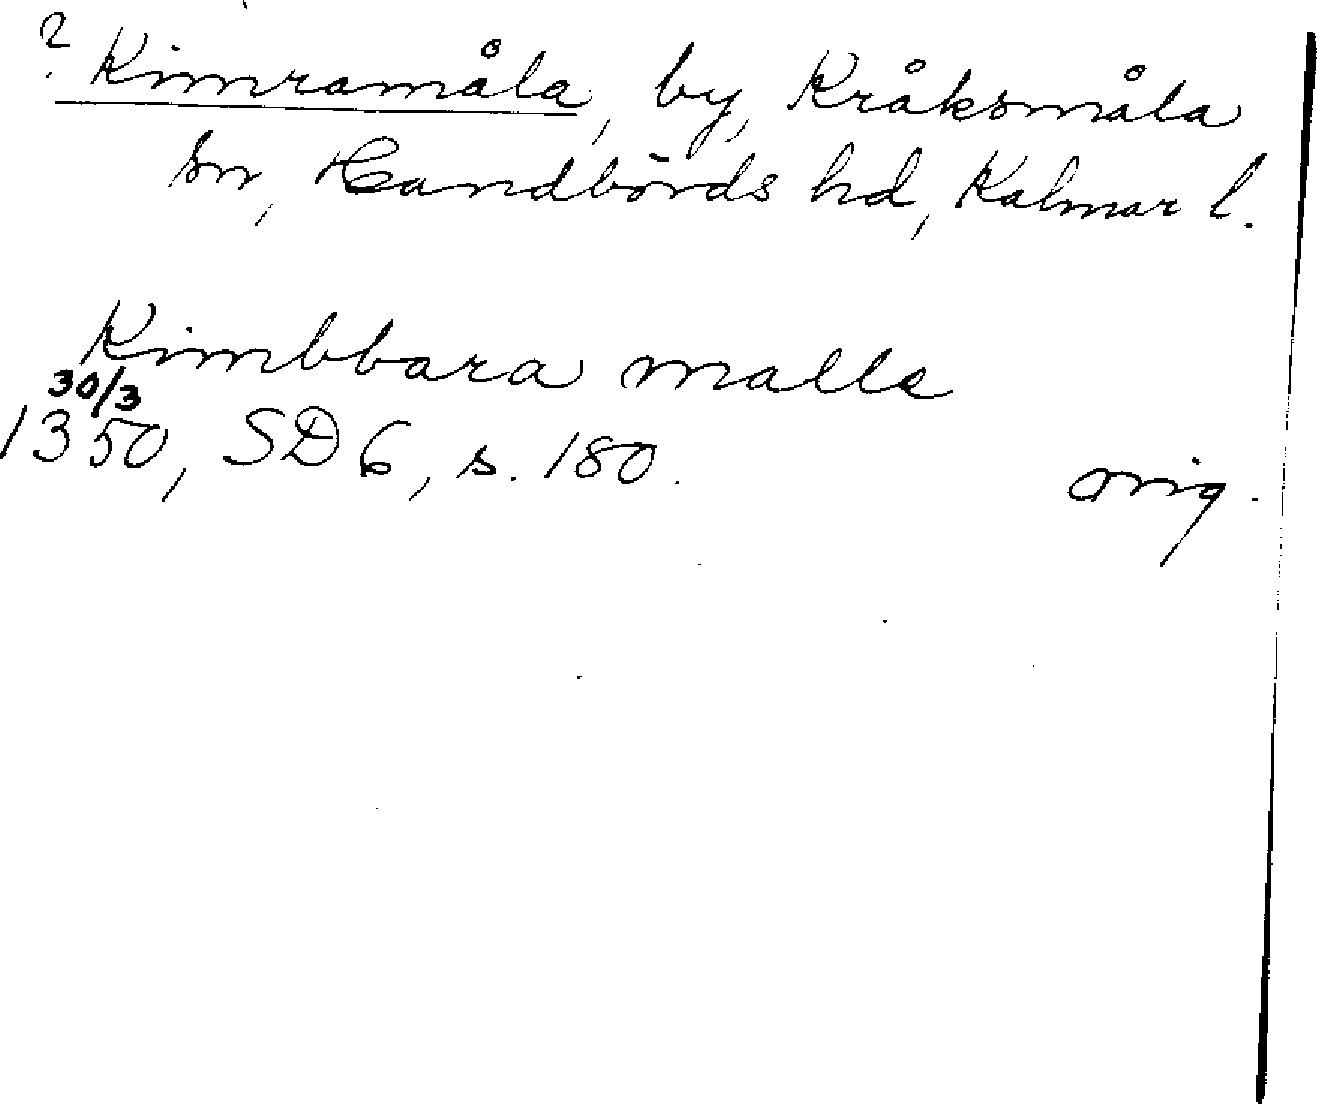 ? Kimramåla, by, Kråksmåla
sn, Handbörds hd, Kalmar l.
Kimbbara malle
30/3
1350, SD 6, s. 180.
orig.